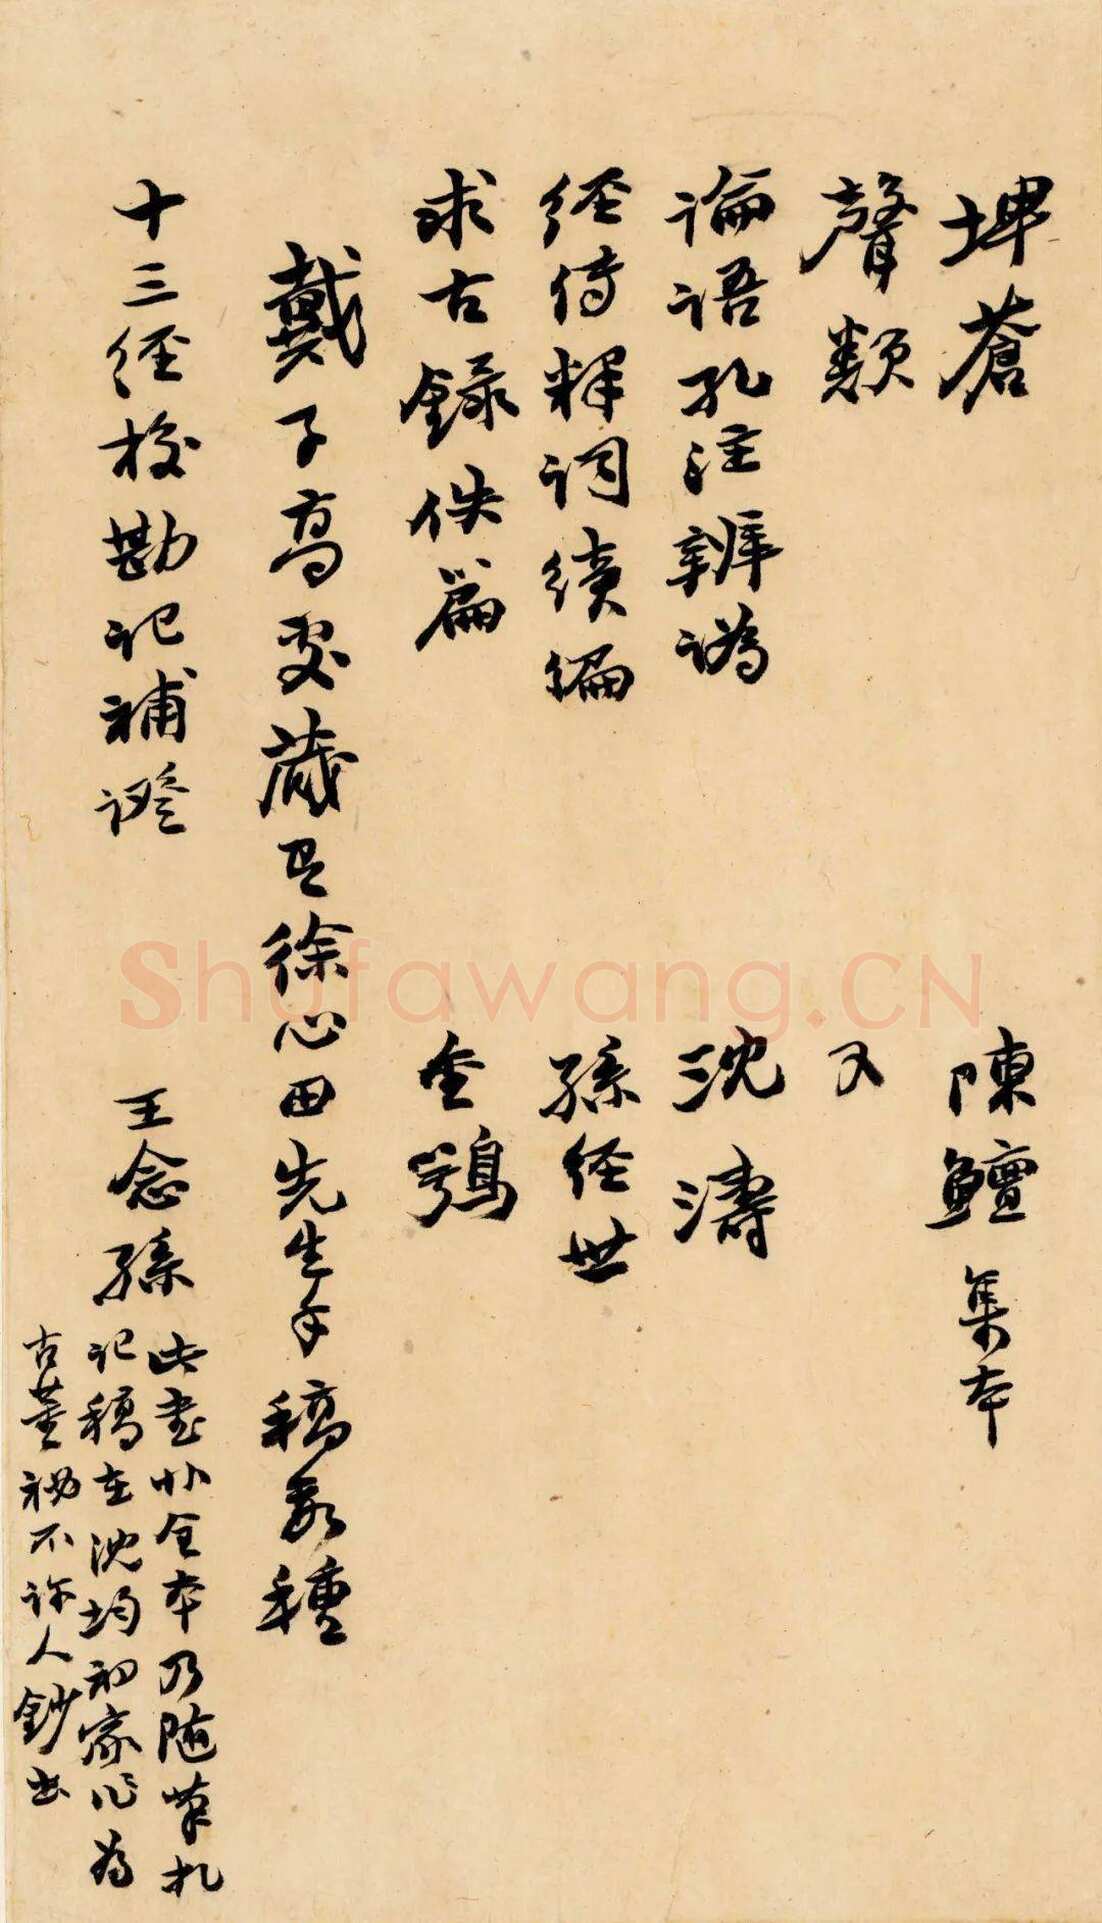 埤蒼 陳鱣集本
聲類 又
論語孔注辨譌 沈濤
經傳釋詞續編 孫經世
求古錄佚篇 金鶚
戴子高處藏有徐心田先生手稿數種
十三經校勘記補證 王念孫
此書非全本乃隨筆札
記稿在沈均初家作為
古董祕不許人鈔出
Shufawang.CN